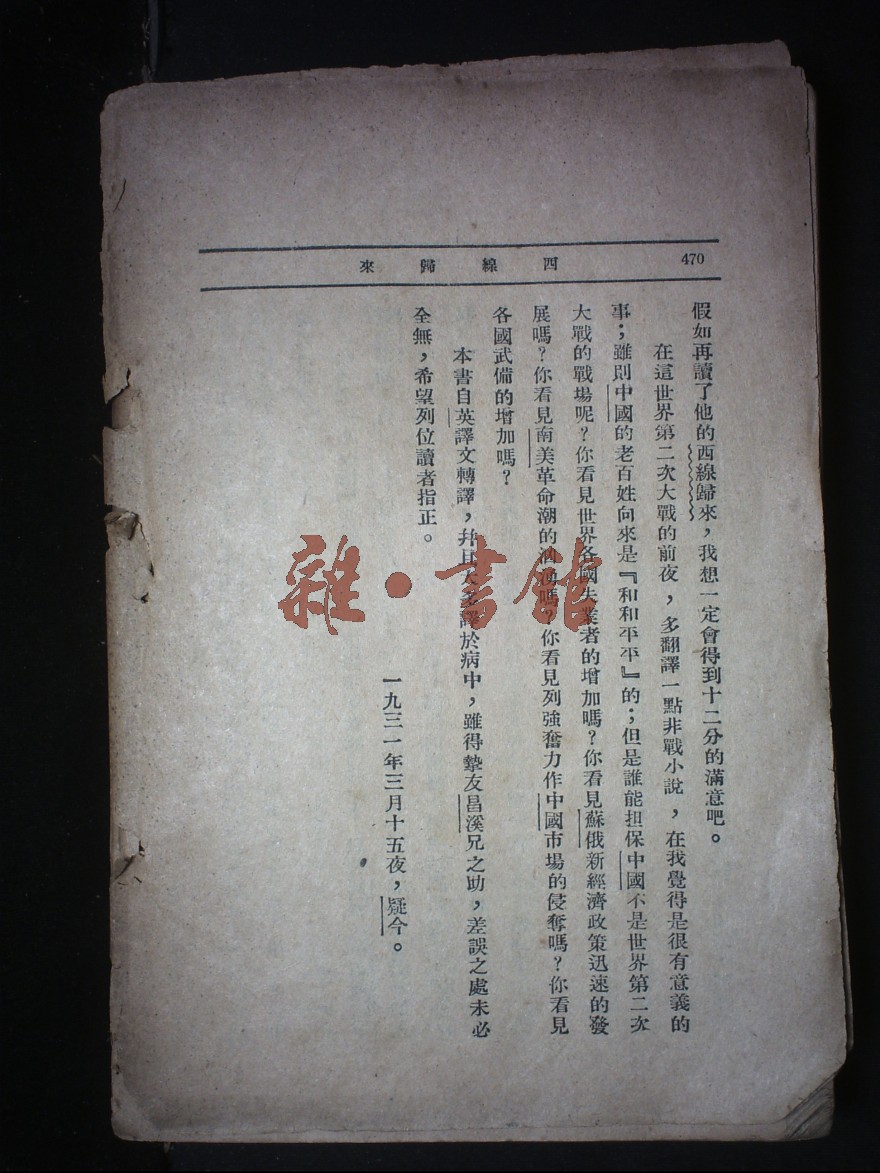 470
西線歸來
假如再讀了他的西線歸來，我想一定會得到十二分的滿意吧。
在這世界第二次大戰的前夜，多翻譯一點非戰小說，在我覺得是很有意義的
事；雖則中國的老百姓向來是『和和平平』的；但是誰能担保中國不是世界第二次
大戰的戰場呢？你看見世界各國失業者的增加嗎？你看見蘇俄新經濟政策迅速的發
展嗎？你看見南美革命潮的洶湧嗎？你看見列強奮力作中國市場的侵奪嗎？你看見
各國武備的增加嗎？
本書自英譯文轉譯，幷且大譯於病中，雖得摯友昌溪兄之助，差誤之處未必
全無，希望列位讀者指正。
一九三一年三月十五夜，疑今。
雜·書館